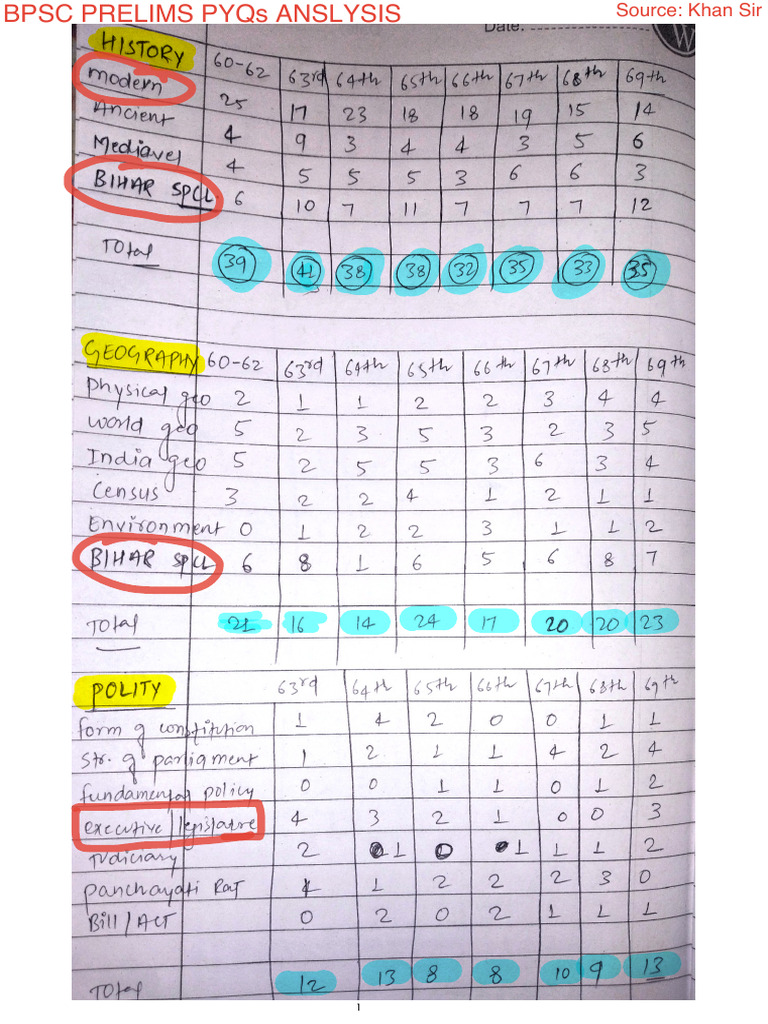 BPSC PRELIMS PYQs ANSLYSIS
Source: Khan Sir
Date:
HISTORY 60-62 63rd 64th 65th 66th 67th 68th 69th
modern 25 17 23 18 18 19 15 14
Ancient 4 9 3 4 4 3 5 6
Mediavel 4 5 5 5 3 6 6 3
BIHAR SPCL 6 10 7 11 7 7 7 12
Total 39 41 38 38 32 35 33 35
GEOGRAPHY 60-62 63rd 64th 65th 66th 67th 68th 69th
Physical geo 2 1 1 2 2 3 4 4
world geo 5 2 3 5 3 2 3 5
India geo 5 2 5 5 3 6 3 4
Census 3 2 2 4 1 2 1 1
Environment 0 1 2 2 3 1 1 2
BIHAR SPCL 6 8 1 6 5 6 8 7
Total 21 16 14 24 17 20 20 23
POLITY 63rd 64th 65th 66th 67th 68th 69th
form of constitution 1 4 2 0 0 1 1
Str. of parliament 1 2 1 1 4 2 4
fundamental policy 0 0 1 1 0 1 2
executive/legislature 4 3 2 1 0 0 3
Judiciary 2 1 0 1 1 1 2
panchayati Rat 4 1 2 2 2 3 0
Bill/ACT 0 2 0 2 1 1 1
Total 12 13 8 8 10 9 13
1